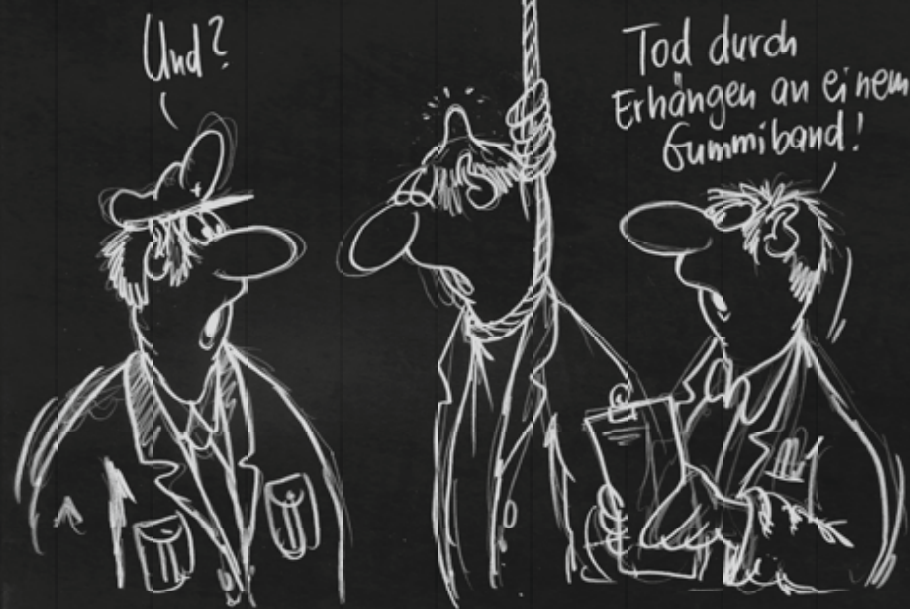 Und?
Tod durch
Erhängen an einem
Gummiband!